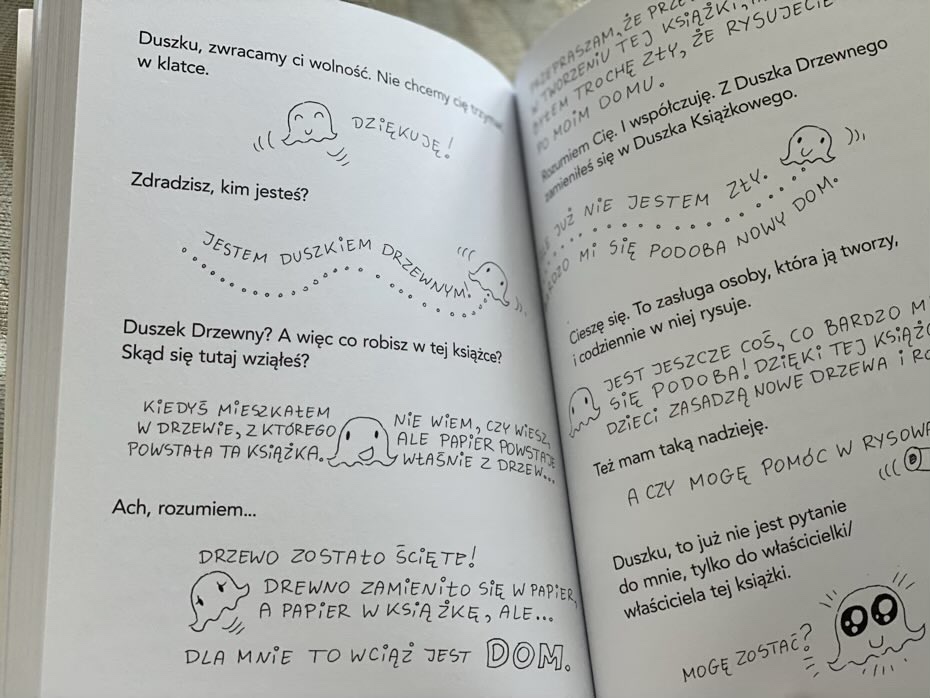 Duszku, zwracamy ci wolność. Nie chcemy cię trzymać
w klatce.
DZIĘKUJĘ!
Zdradzisz, kim jesteś?
JESTEM DUSZKIEM DRZEWNYM.
Duszek Drzewny? A więc co robisz w tej książce?
Skąd się tutaj wziąłeś?
KIEDYŚ MIESZKAŁEM
W DRZEWIE, Z KTÓREGO
POWSTAŁA TA KSIĄŻKA.
NIE WIEM, CZY WIESZ,
ALE PAPIER POWSTAJE
WŁAŚNIE Z DRZEW...
Ach, rozumiem...
DRZEWO ZOSTAŁO ŚCIĘTE!
DREWNO ZAMIENIŁO SIĘ W PAPIER,
A PAPIER W KSIĄŻKĘ, ALE...
DLA MNIE TO WCIĄŻ JEST DOM.
PRZEPRASZAM, ŻE
W TWORZENIU TEJ KSIĄŻKI,
BYŁEM TROCHĘ ZŁY, ŻE RYSUJECIE
PO MOIM DOMU.
Rozumiem Cię. I współczuję. Z Duszka Drzewnego
zamieniłeś się w Duszka Książkowego.
JUŻ NIE JESTEM ZŁY.
BARDZO MI SIĘ PODOBA NOWY DOM.
Cieszę się. To zasługa osoby, która ją tworzy,
i codziennie w niej rysuje.
JEST JESZCZE COŚ, CO BARDZO
SIĘ PODOBA! DZIĘKI TEJ
DZIECI ZASADZĄ NOWE DRZEWA I
Też mam taką nadzieję.
A CZY MOGĘ POMÓC W
Duszku, to już nie jest pytanie
do mnie, tylko do właścicielki/
właściciela tej książki.
MOGĘ ZOSTAĆ?